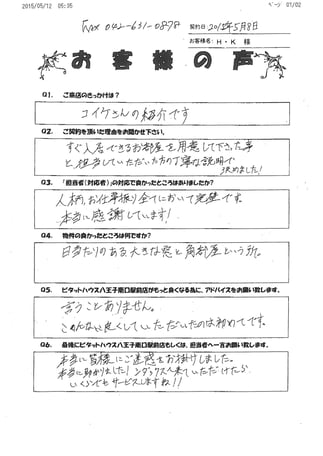 2015/05/12 05:35
ページ 01/02
Fax 042-631-0898
契約日：2015年5月8日
お客様名：H・K 様
お客様の声
Q1. ご来店のきっかけは？
コイケさんの紹介です
Q2. ご契約を頂いた理由をお聞かせ下さい。
すぐ入居できるお部屋を用意して下さった事
と担当していただいた方の丁寧な説明で
決めました！
Q3. 「担当者（対応者）」の対応で良かったところはありましたか？
人柄、お仕事振り全てにおいて完璧です。
本当に感謝しています！
Q4. 物件の良かったところは何ですか？
日当たりのある大きな窓と角部屋という所。
Q5. ピタットハウス八王子南口駅前店がもっと良くなる為に、アドバイスをお願い致します。
言うことありません。
こんなに良くしていただいたのは初めてです。
Q6. 最後にピタットハウス八王子南口駅前店もしくは、担当者へ一言お願い致します。
本当に皆様にご迷惑をお掛けしました。
本当に助かりました！
来ていただけたら
いくらでもサービスしますね！！